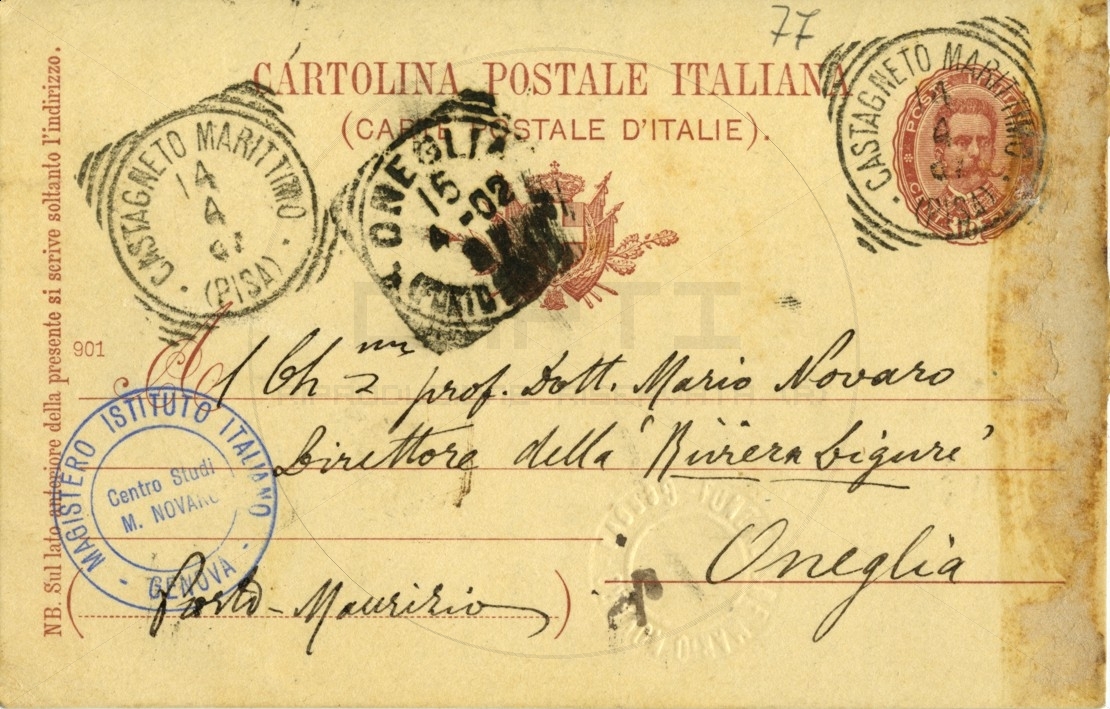 77
CARTOLINA POSTALE ITALIANA
(CARTE POSTALE D'ITALIE).
CASTAGNETO MARITTIMO
14
4
(PISA)
ONEGLIA
15
4-02
CASTAGNETO MARITTIMO
4
(PISA)
NB. Sul lato anteriore della presente si scrive soltanto l'indirizzo.
901
Al Ch mo prof. Dott. Mario Novaro
Direttore della "Riviera Ligure"
Oneglia
(Porto-Maurizio)
MAGISTERO ISTITUTO ITALIANO
Centro Studi
M. NOVARO
- GENOVA -